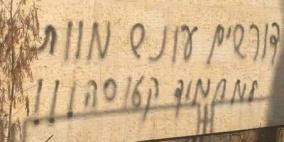 דורשים עונש מוות
למחמוד קטוסה!!!